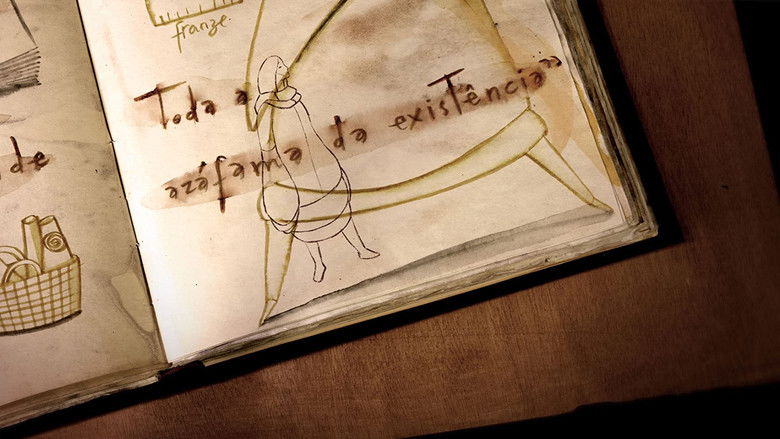 de
franze.
Toda a
azáfama da existência"